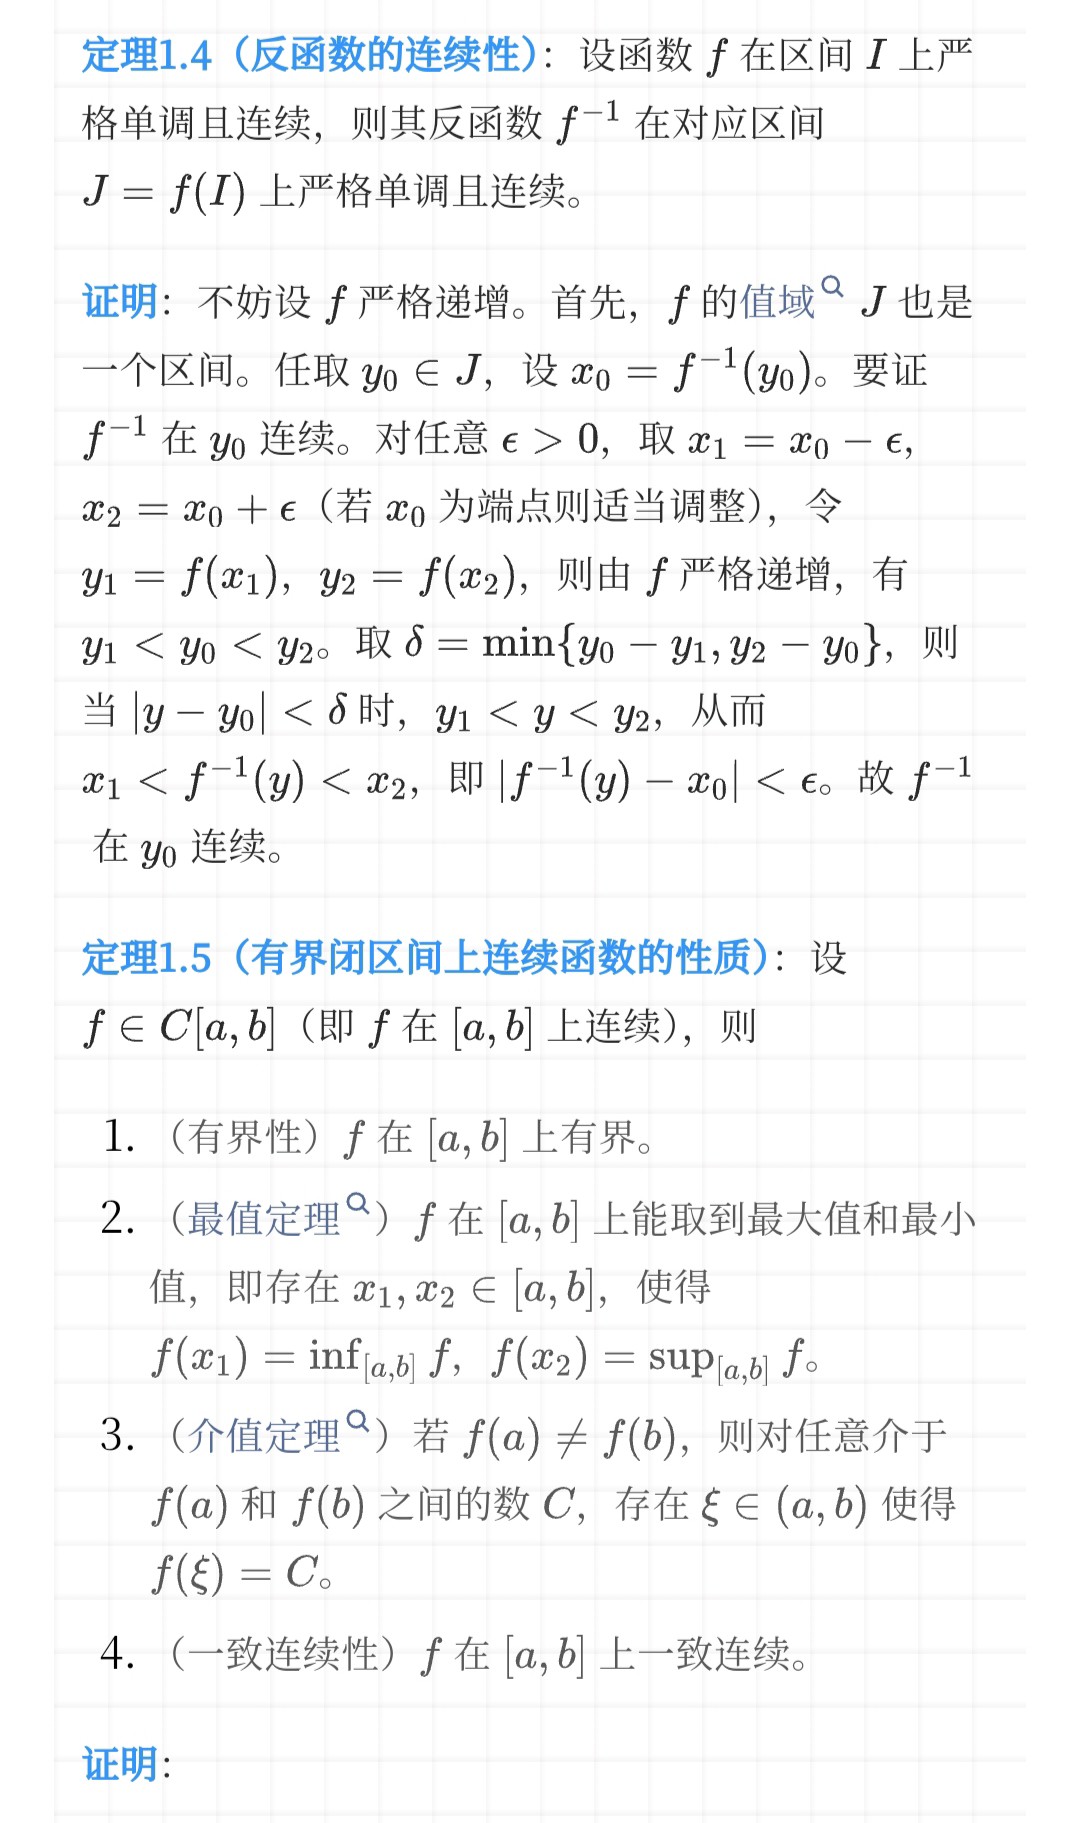 定理1.4（反函数的连续性）：设函数 f 在区间 I 上严
格单调且连续，则其反函数 f⁻¹ 在对应区间
J = f(I) 上严格单调且连续。
证明：不妨设 f 严格递增。首先，f 的值域 J 也是
一个区间。任取 y₀ ∈ J，设 x₀ = f⁻¹(y₀)。要证
f⁻¹ 在 y₀ 连续。对任意 ϵ > 0，取 x₁ = x₀ − ϵ,
x₂ = x₀ + ϵ（若 x₀ 为端点则适当调整），令
y₁ = f(x₁)，y₂ = f(x₂)，则由 f 严格递增，有
y₁ < y₀ < y₂。取 δ = min{y₀ − y₁, y₂ − y₀}，则
当 |y − y₀| < δ 时，y₁ < y < y₂，从而
x₁ < f⁻¹(y) < x₂，即 |f⁻¹(y) − x₀| < ϵ。故 f⁻¹
在 y₀ 连续。
定理1.5（有界闭区间上连续函数的性质）：设
f ∈ C[a, b]（即 f 在 [a, b] 上连续），则
1. （有界性）f 在 [a, b] 上有界。
2. （最值定理）f 在 [a, b] 上能取到最大值和最小
值，即存在 x₁, x₂ ∈ [a, b]，使得
f(x₁) = inf_[a,b] f，f(x₂) = sup_[a,b] f。
3. （介值定理）若 f(a) ≠ f(b)，则对任意介于
f(a) 和 f(b) 之间的数 C，存在 ξ ∈ (a, b) 使得
f(ξ) = C。
4. （一致连续性）f 在 [a, b] 上一致连续。
证明：